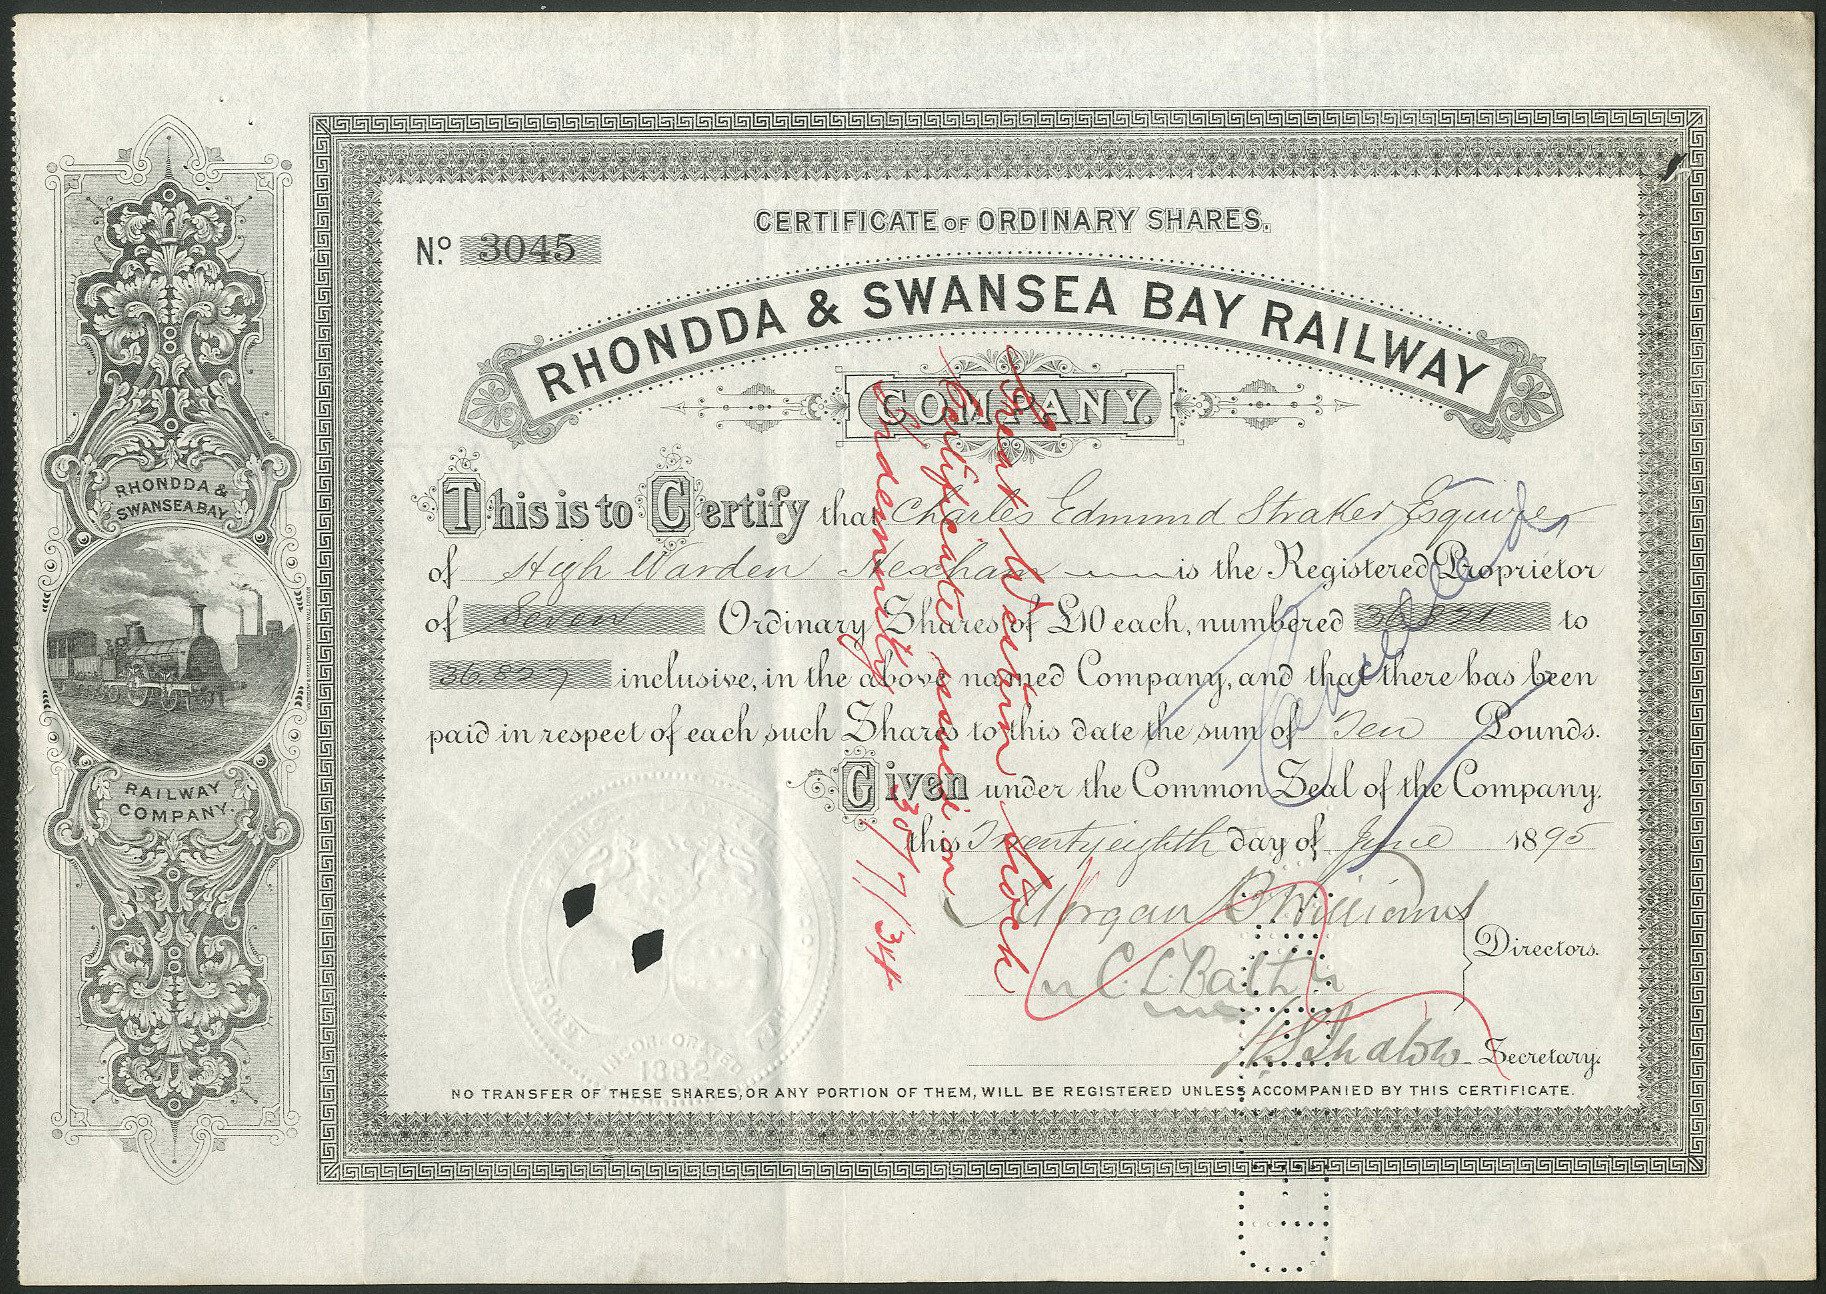 CERTIFICATE OF ORDINARY SHARES.
No. 3045
RHONDDA & SWANSEA BAY RAILWAY
COMPANY.
This is to Certify that Charles Edmund Straker Esquire
of High Warden Hexham is the Registered Proprietor
of Seven Ordinary Shares of £10 each, numbered 36821 to
36827 inclusive, in the above named Company, and that there has been
paid in respect of each such Share to this date the sum of Ten Pounds.
Given under the Common Seal of the Company,
this Twenty eighth day of June 1895
Morgan B Williams
Directors.
Secretary.
NO TRANSFER OF THESE SHARES, OR ANY PORTION OF THEM, WILL BE REGISTERED UNLESS ACCOMPANIED BY THIS CERTIFICATE.
RHONDDA &
SWANSEA BAY
RAILWAY
COMPANY.
Great Western Stock
Certificate issued on
Indemnity 30/7/34
Cancelled
INCORPORATED
1882